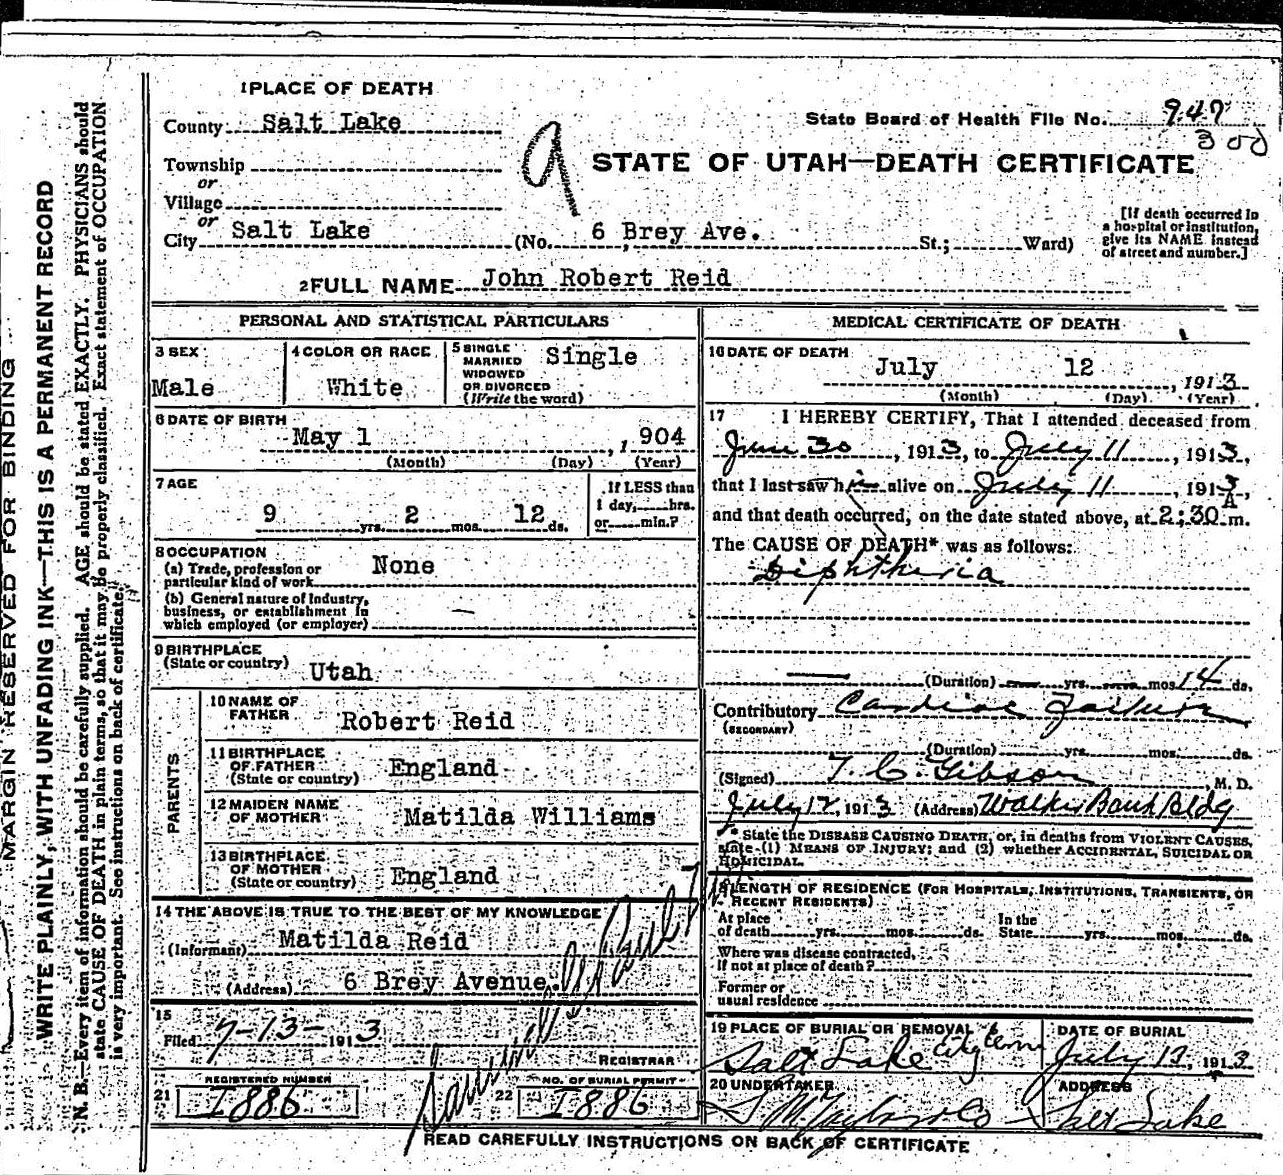 MARGIN RESERVED FOR BINDING
WRITE PLAINLY, WITH UNFADING INK—THIS IS A PERMANENT RECORD
N. B.—Every item of information should be carefully supplied. AGE should be stated EXACTLY. PHYSICIANS should
state CAUSE OF DEATH in plain terms, so that it may be properly classified. Exact statement of OCCUPATION
is very important. See instructions on back of certificate.
1 PLACE OF DEATH
County Salt Lake
State Board of Health File No. 947
9
Township
or
Village
or
City Salt Lake (No. 6 Brey Ave. St.; Ward)
STATE OF UTAH—DEATH CERTIFICATE
[If death occurred in
a hospital or institution,
give its NAME instead
of street and number.]
2 FULL NAME John Robert Reid
PERSONAL AND STATISTICAL PARTICULARS
3 SEX
Male
4 COLOR OR RACE
White
5 SINGLE
MARRIED
WIDOWED
OR DIVORCED
(Write the word)
Single
6 DATE OF BIRTH
May 1 , 1904
(Month) (Day) (Year)
7 AGE
9 yrs. 2 mos. 12 ds.
If LESS than
1 day, hrs.
or min.?
8 OCCUPATION
(a) Trade, profession or
particular kind of work
None
(b) General nature of Industry,
business, or establishment in
which employed (or employer)
—
9 BIRTHPLACE
(State or country)
Utah
PARENTS
10 NAME OF
FATHER
Robert Reid
11 BIRTHPLACE
OF FATHER
(State or country)
England
12 MAIDEN NAME
OF MOTHER
Matilda Williams
13 BIRTHPLACE
OF MOTHER
(State or country)
England
14 THE ABOVE IS TRUE TO THE BEST OF MY KNOWLEDGE
(Informant) Matilda Reid
(Address) 6 Brey Avenue.
15
Filed 7-13- 1913
REGISTRAR
21 REGISTERED NUMBER
1886
22 NO. OF BURIAL PERMIT
1886
MEDICAL CERTIFICATE OF DEATH
16 DATE OF DEATH
July 12 , 1913
(Month) (Day) (Year)
17 I HEREBY CERTIFY, That I attended deceased from
June 30 , 1913, to July 11 , 1913,
that I last saw him alive on July 11 , 1913,
and that death occurred, on the date stated above, at 2:30 A m.
The CAUSE OF DEATH* was as follows:
Diphtheria
(Duration) yrs. mos. 14 ds.
Contributory Cardiac Failure
(SECONDARY)
(Duration) yrs. mos. ds.
(Signed) T. C. Gibson M. D.
July 12, 1913 (Address) Walker Bank Bldg
* State the DISEASE CAUSING DEATH, or, in deaths from VIOLENT CAUSES,
state (1) MEANS OF INJURY; and (2) whether ACCIDENTAL, SUICIDAL OR
HOMICIDAL.
18 LENGTH OF RESIDENCE (FOR HOSPITALS, INSTITUTIONS, TRANSIENTS, OR
RECENT RESIDENTS)
At place
of death yrs. mos. ds.
In the
State yrs. mos. ds.
Where was disease contracted,
If not at place of death?
Former or
usual residence
19 PLACE OF BURIAL OR REMOVAL
Salt Lake City Cem
DATE OF BURIAL
July 13, 1913
20 UNDERTAKER
S M Taylor & Co
ADDRESS
Salt Lake
READ CAREFULLY INSTRUCTIONS ON BACK OF CERTIFICATE